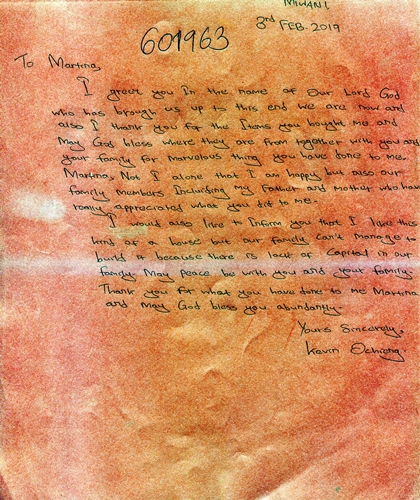 MIWANI
3rd FEB. 2019
601963
To Martina,
I greet you In the name of our Lord God
who has brough us up to this end we are now and
also I thank you for the Items you bought me and
May God bless where they are from together with you and
your family for Marvelous thing you have done to me.
Martina, Not I alone that I am happy but also our
family members Including my Father and mother who has
really appreciated what you did to me.
I would also like to Inform you that I like this
kind of a house but our family can't manage to
build it because there is lack of Capital in our
family. May peace be with you and your family.
Thank you for what you have done to me Martina
and May God bless you abundantly.
Yours Sincerely,
Kevin Ochieng.